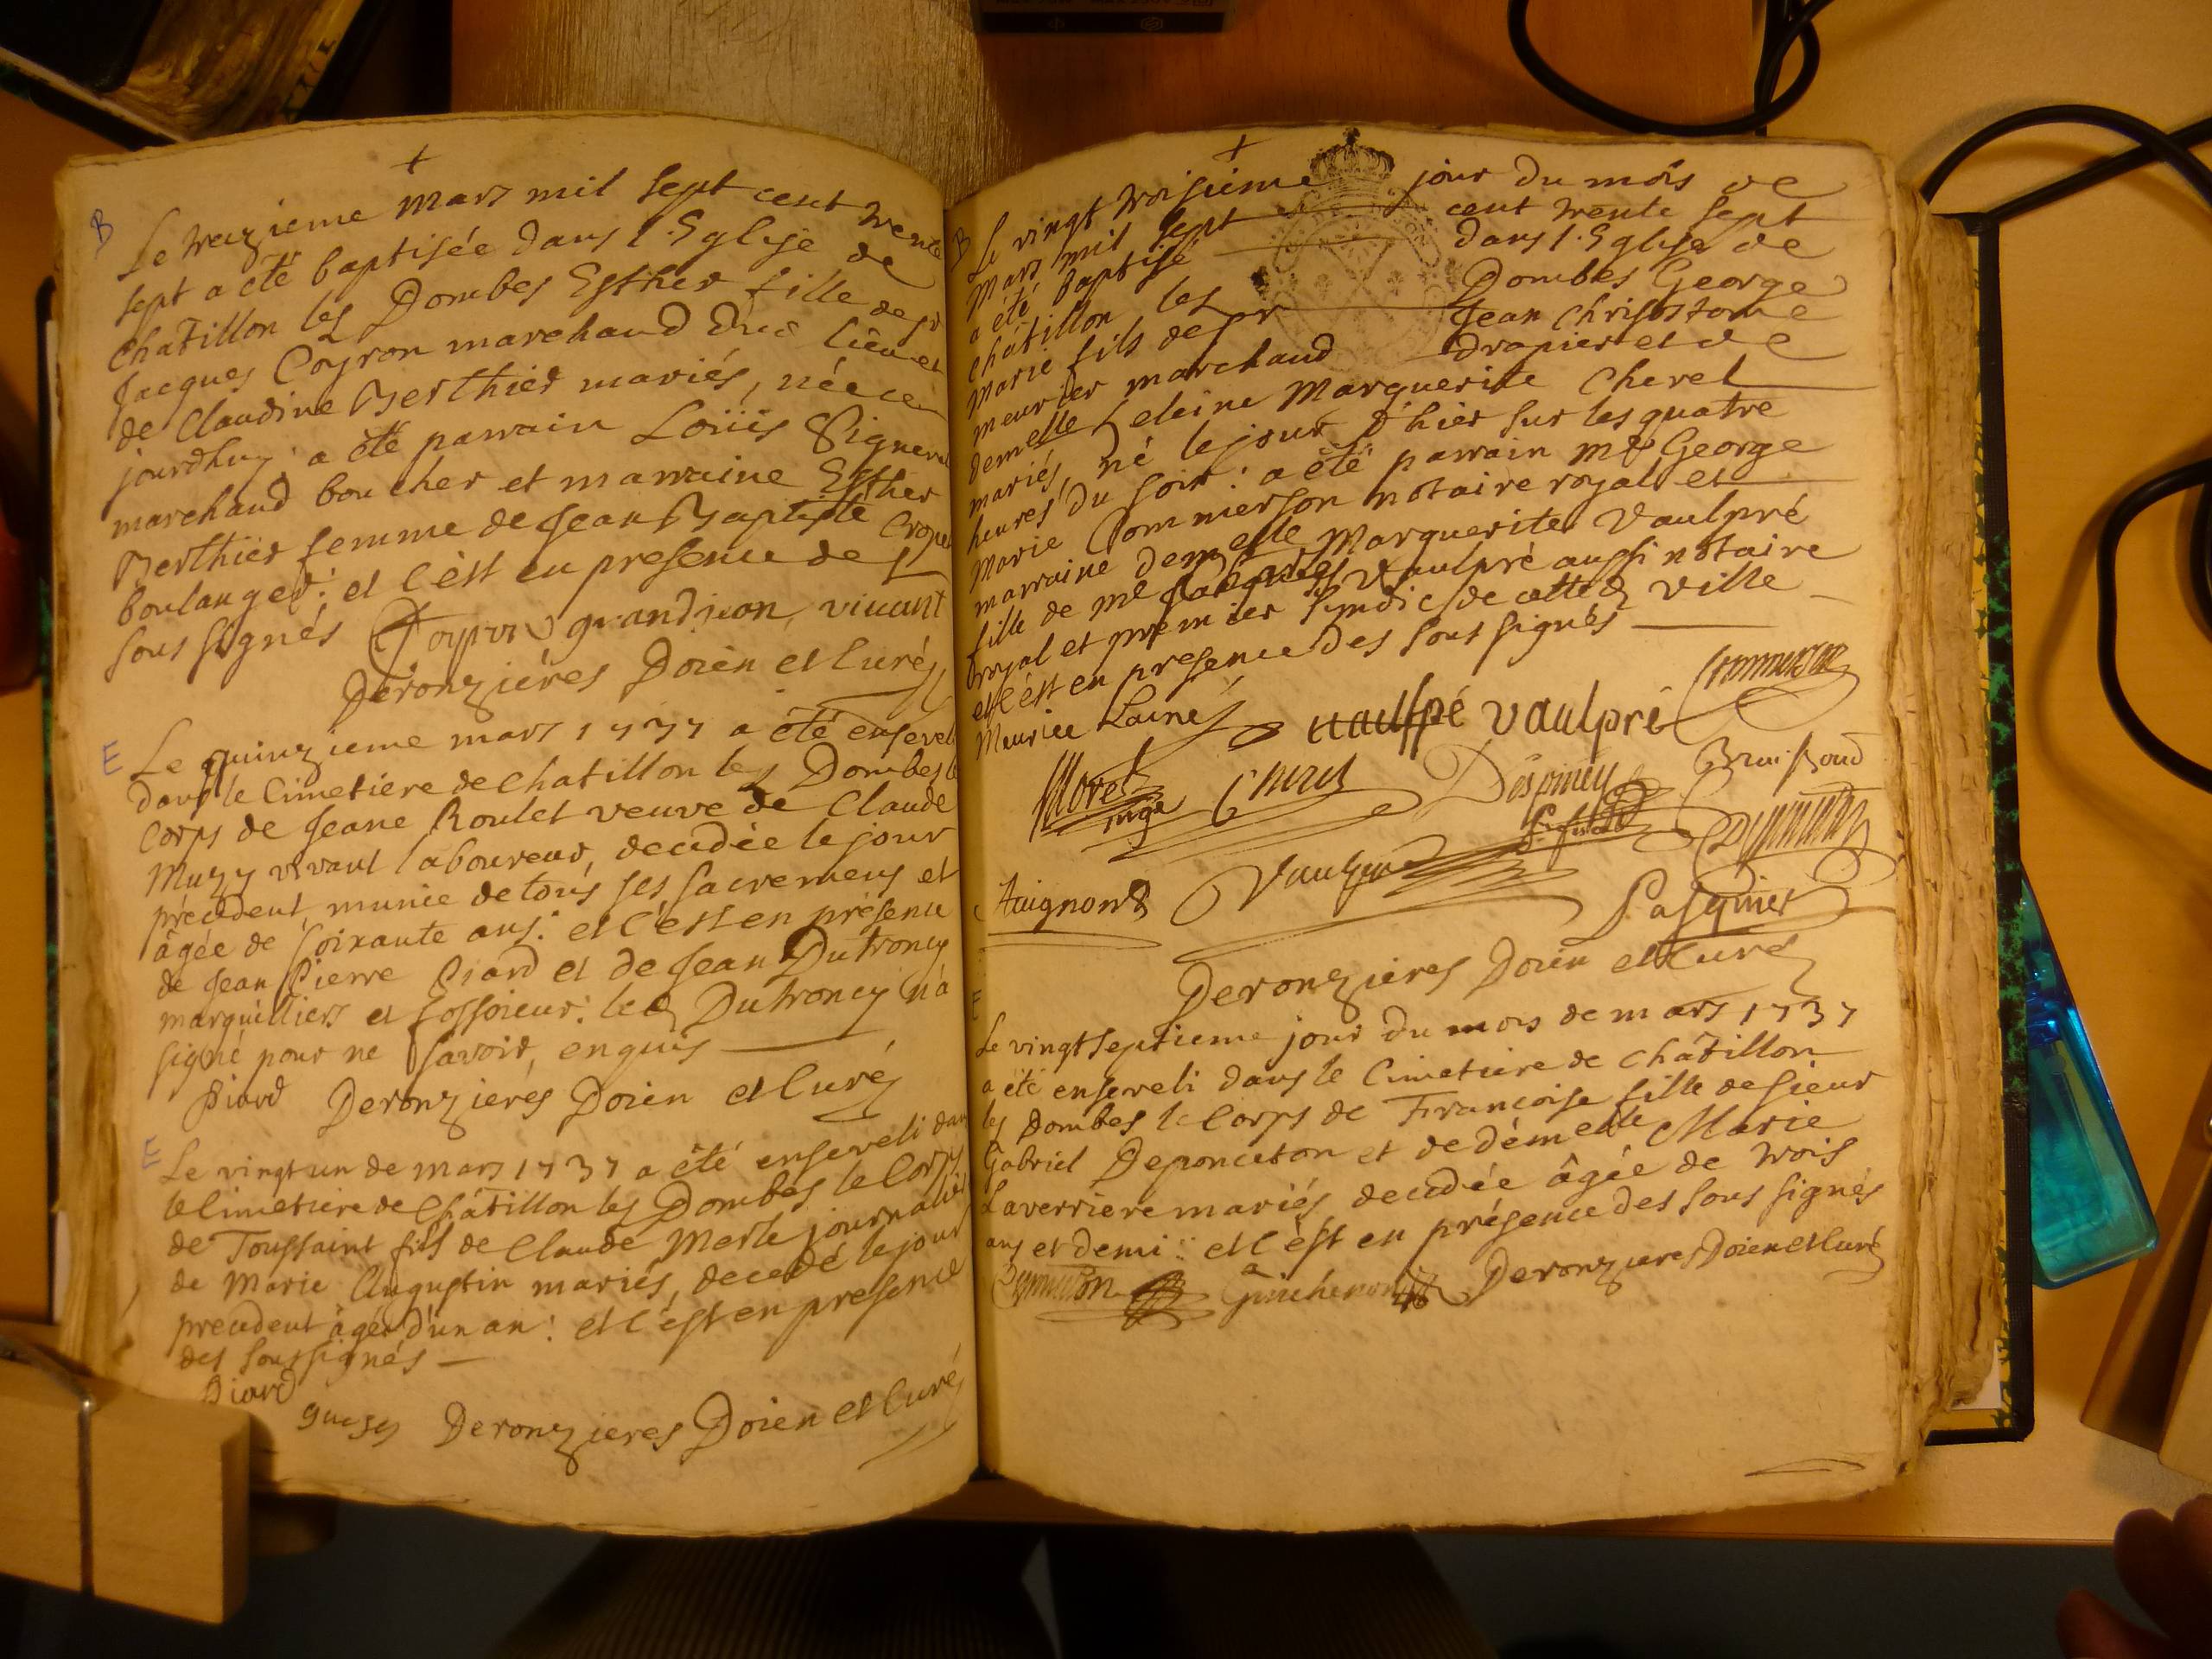 B
Le treizieme mars mil sept cent trente
sept a eté baptisée dans l'Eglise de
Chatillon les Dombes Esther fille de sr
Jacques Coyron marchand dud. lieu et
de Claudine Berthier mariés, née ce
jourdhuy: a eté parrain Loüis
marchand boucher et marraine Esther
Berthier femme de Jean Baptiste
boulanger: et c'est en presence des
sous signés Coyron grandjean, vivant
Deronzières Doien et Curé
E
Le quinzieme mars 1737 a été enseveli
dans le Cimetiere de chatillon les Dombes le
corps de Jeane Roulet veuve de Claude
Muzy vivant laboureur, decedée le jour
précedent, munie de tous ses sacremens et
âgée de soixante ans: et c'est en présence
de Jean Pierre Piard et de Jean Dutroncy
marguilliers et fossoieur: led. Dutroncy n'a
signé pour ne savoir, enquis
Piard Deronzieres Doien et Curé
E
Le vingt un de mars 1737 a été enseveli dans
le Cimetiere de Châtillon les Dombes le Corps
de Toussaint fils de Claude Merle journalier
de Marie Augustin mariés, decedé le jour
precedent âgé d'un an: et c'est en presence
des soussignés
Piard
Deronzieres Doien et Curé
B
Le vingt troisieme jour du mois de
Mars mil sept cent trente sept
a été baptisé dans l'Eglise de
châtillon les Dombes George
Marie fils de sr Jean Chrisostome
meurier marchand drapier et de
demelle heleine Marguerite Cheret
mariés, né le jour d'hier sur les quatre
heures du soir: a été parrain me George
Marie Commerson notaire royal et
marraine demelle Marguerite Vaulpré
fille de me Jacques Vaulpré aussi notaire
royal et premier syndic de cette ville
et c'est en presence des sous signés
Meurier Lainé vaulpré Commerson
Cheret
Pasquier
Deronzieres Doien et Curé
E
Le vingt septieme jour du mois de mars 1737
a été enseveli dans le Cimetiere de Châtillon
les Dombes le Corps de Francoise fille de sieur
Gabriel Deponceton et de demelle Marie
Laverriere mariés, decedée âgée de trois
ans et demi: et c'est en présence des sous signés
Deronzieres Doien et Curé